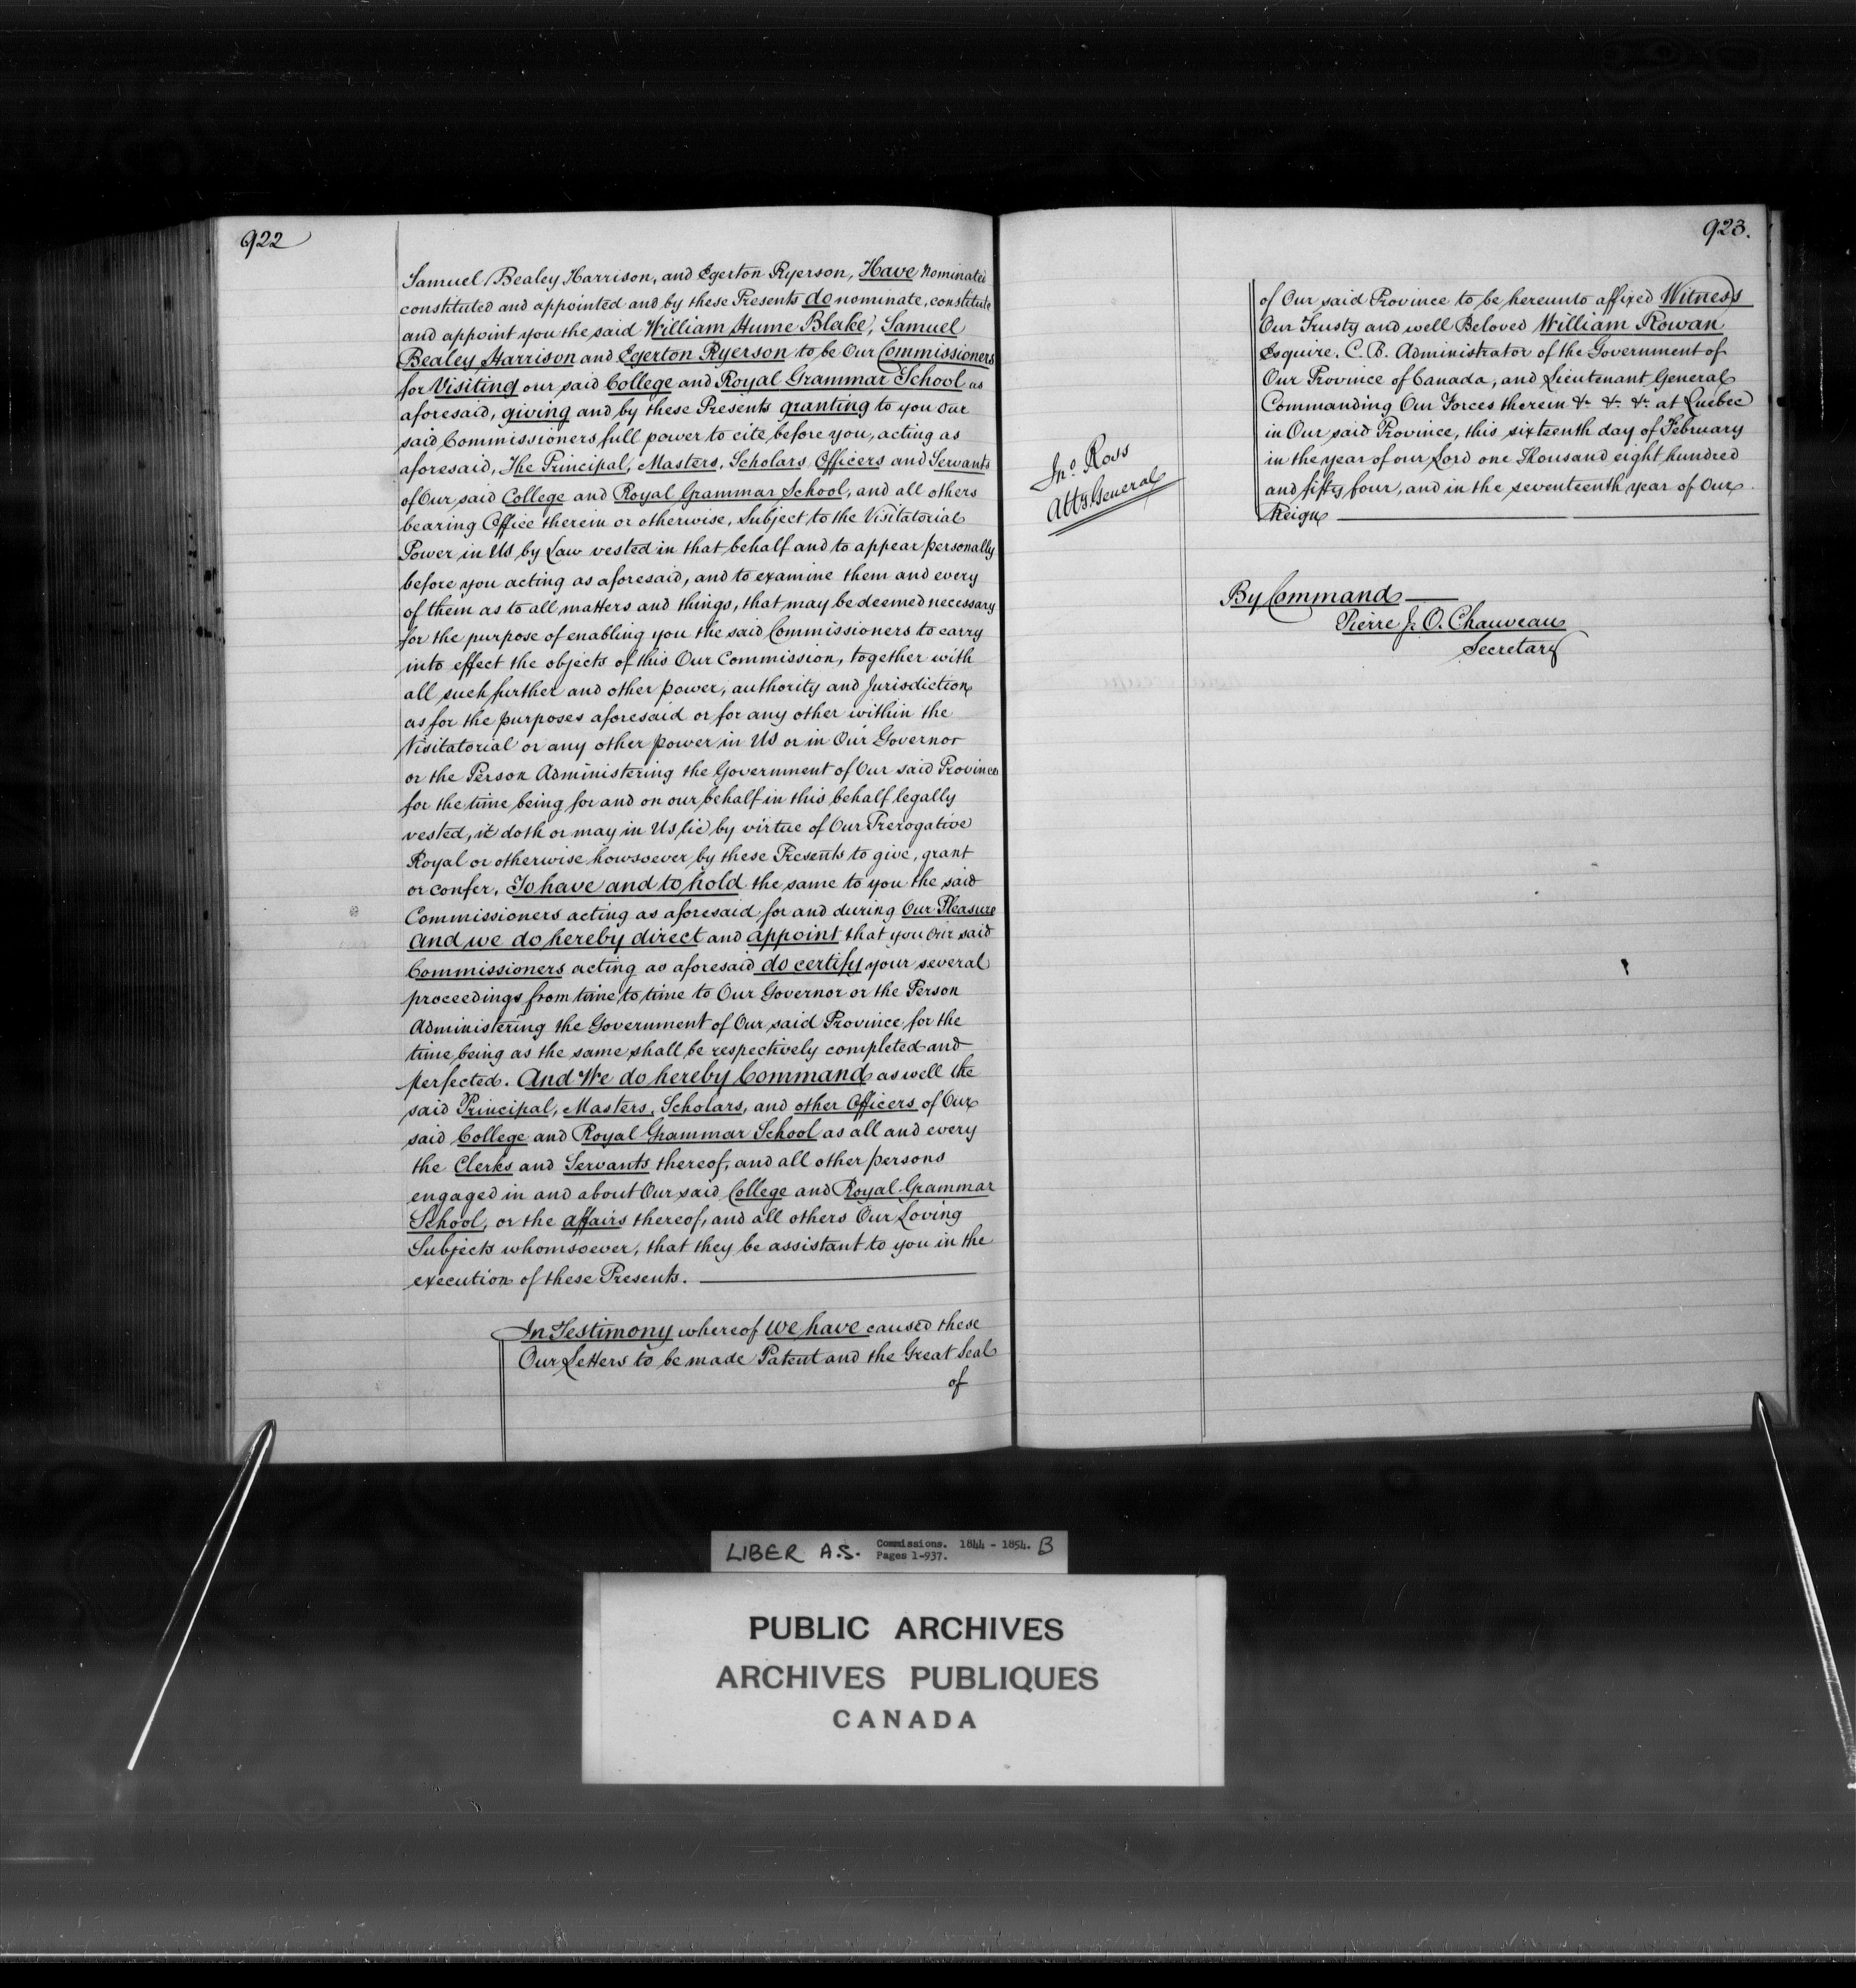 922
Samuel Bealey Harrison, and Egerton Ryerson, Have nominated
constituted and appointed and by these Presents do nominate, constitute
and appoint you the said William Hume Blake, Samuel
Bealey Harrison and Egerton Ryerson to be Our Commissioners
for Visiting our said College and Royal Grammar School as
aforesaid, giving and by these Presents granting to you our
said Commissioners full power to cite before you, acting as
aforesaid, The Principal, Masters, Scholars Officers and Servants
of Our said College and Royal Grammar School, and all others
bearing Office therein or otherwise, Subject to the Visitatorial
Power in Us by Law vested in that behalf and to appear personally
before you acting as aforesaid, and to examine them and every
of them as to all matters and things, that may be deemed necessary
for the purpose of enabling you the said Commissioners to carry
into effect the objects of this Our Commission, together with
all such further and other power, authority and Jurisdiction
as for the purposes aforesaid or for any other within the
Visitatorial or any other power in Us or in Our Governor
or the Person Administering the Government of Our said Province
for the time being for and on our behalf in this behalf legally
vested, it doth or may in Us lie by virtue of Our Prerogative
Royal or otherwise howsoever by these Presents to give, grant
or confer. To have and to hold the same to you the said
Commissioners acting as aforesaid for and during Our Pleasure
And we do hereby direct and appoint that you Our said
Commissioners acting as aforesaid do certify your several
proceedings from time to time to Our Governor or the Person
Administering the Government of Our said Province, for the
time being as the same shall be respectively completed and
perfected. And We do hereby Command as well the
said Principal, Masters, Scholars, and other Officers of Our
said College and Royal Grammar School as all and every
the Clerks and Servants thereof, and all other persons
engaged in and about Our said College and Royal Grammar
School, or the affairs thereof, and all others Our Loving
Subjects whomsoever, that they be assistant to you in the
execution of these Presents.
In Testimony whereof we have caused these
Our Letters to be made Patent and the Great Seal
of
923.
of Our said Province to be hereunto affixed Witness
Our Trusty and well Beloved William Rowan
Esquire. C. B. Administrator of the Government of
Our Province of Canada, and Lieutenant General
Commanding Our Forces therein &c &c &c at Quebec
in Our said Province, this sixteenth day of February
in the year of our Lord one Thousand eight hundred
and fifty four, and in the seventeenth year of Our
Reign
Jno. Ross
Atty. General
By Command
Pierre J. O. Chauveau
Secretary
LIBER A.S. Commissions. 1844 - 1854. B
Pages 1-937.
PUBLIC ARCHIVES
ARCHIVES PUBLIQUES
CANADA